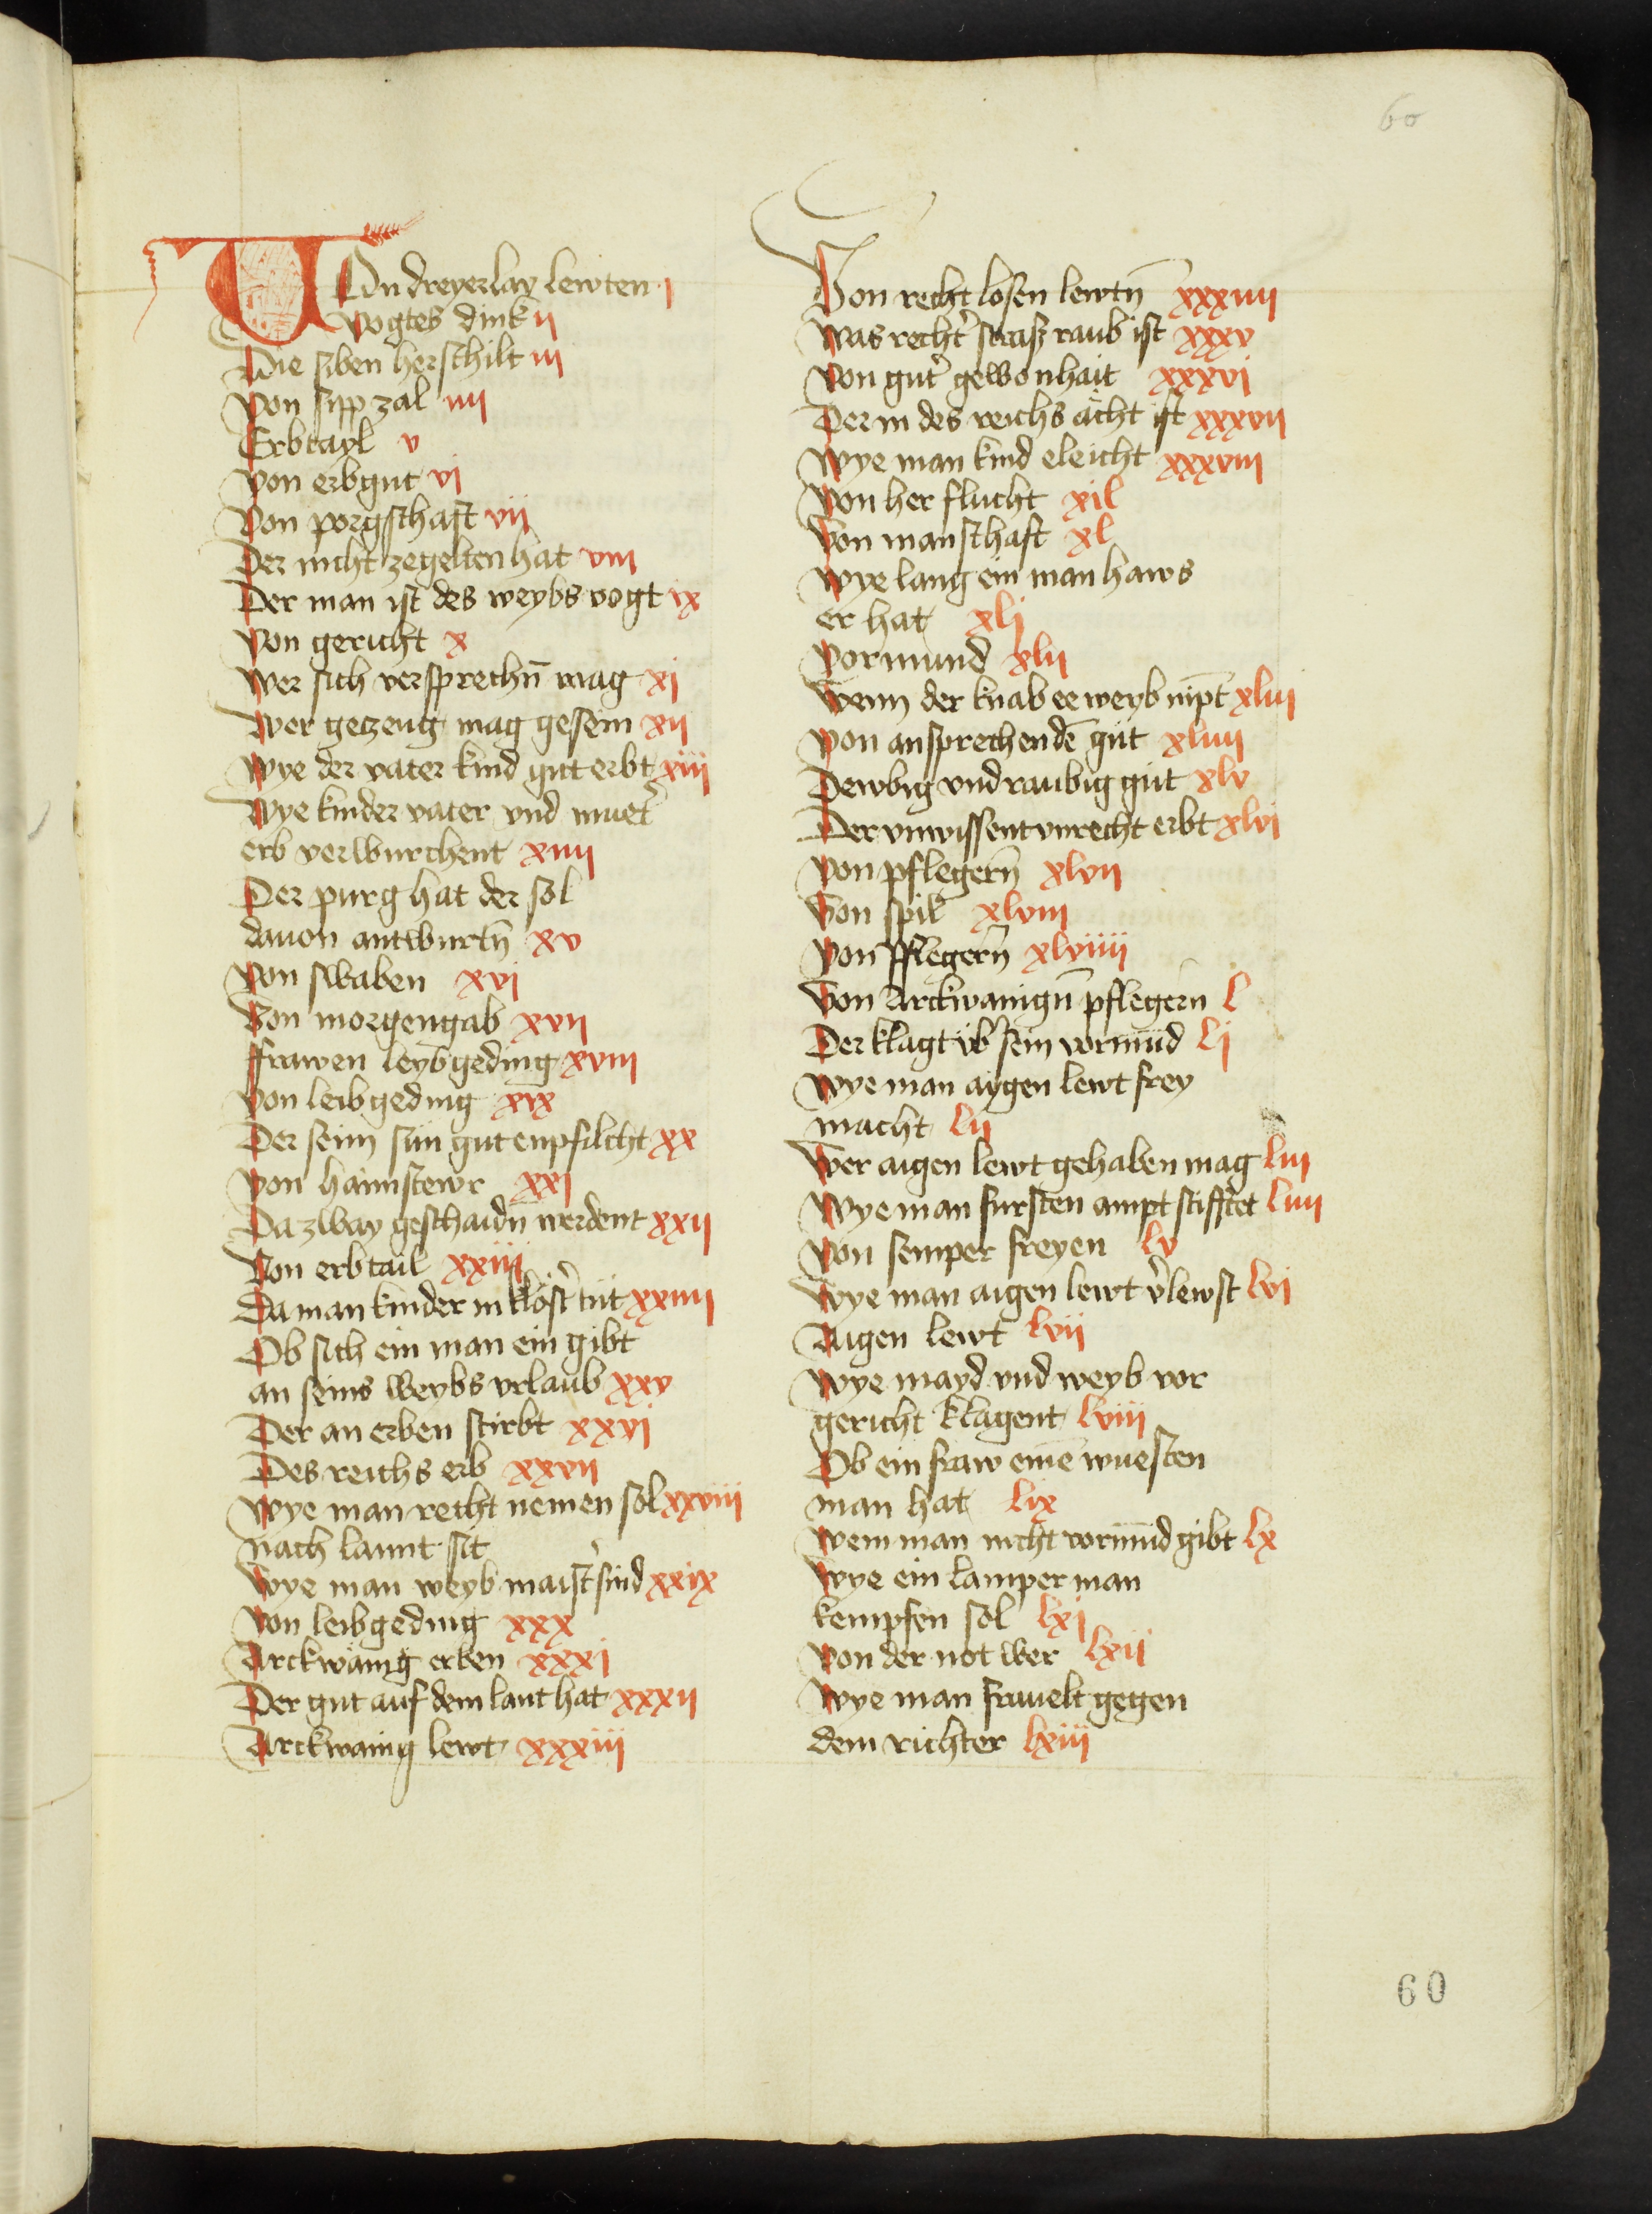 60
VOn dreyerlay lewten i
Vogtes dink ii
Die siben herschilt iii
Von sipp zal iiii
Erbtayl v
Von erbgut vi
Von porgschaft vii
Der nicht zegelten hat viii
Der man ist des weybs vogt ix
Von gericht x
Wer sich versprechn̄ mag xi
Wer geczeug mag gesein xii
Wye der vater kind gut erbt xiii
Wye kinder vater vnd muet̉
erb verwurchent xiiii
Der purg hat der sol
dauon antwurtn̄ xv
Von swaben xvi
Von morgengab xvii
ffrawen leybgeding xviii
Von leibgeding xix
Der seim sün gut enpfilcht xx
Von haimstewr xxi
Da zway geschaidn̄ werdent xxii
Von erbtail xxiii
Da man kinder in klöst̉ tüt xxiiii
Ob sich ein man ein gibt
an seins weybs vrlaub xxv
Der an erben stirbt xxvi
Des reichs erb xxvii
Wye man recht nemen sol xxviii
nach lannt sit
Wye man weyb maist̉ sind xxix
Von leibgeding xxx
Arckwänig erben xxxi
Der gut auf dem lant hat xxxii
Arckwänig lewt xxxiii
Von recht losen lewtn̄ xxxiiii
Was recht̉ strasz raub ist xxxv
Von gut̉ gewonhait xxxvi
Der in des reichs ächt ist xxxvii
Wye man kind eleicht xxxviii
Von her flucht xil
Von manschaft xl
Wye lang ein man haws
er hat xli
Vormund xlii
Wenn der knab ee weyb nipt xliii
Von ansprechendē güt xliiii
Dewbig vnd raubig güt xlv
Der vnwissent vnrecht erbt xlvi
Von pflegern̄ xlvii
Von spil xlviii
Von pflegern̄ xlviiii
Von Arckwanign̄ pflegern l
Der klagt üb̉ sein vormūd li
Wye man aygen lewt frey
macht lii
Wer aigen lewt gehaben mag liii
Wye man fursten ampt stifftet liiii
Von semper freyen lv
Wye man aigen lewt v̉lewst lvi
Aigen lewt lvii
Wye mayd vnd weyb vor
gericht klagent lviii
Ob ein fraw einē wuesten
man hat lix
Wem man nicht vormūd gibt lx
Wye ein lamper man
kempfen sol lxi
Von der not wer lxii
Wye man frauelt gegen
dem richter lxiii
60